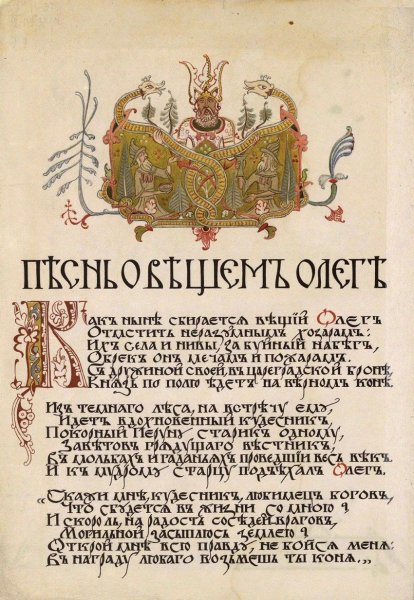 ПѢСНЬ О ВѢЩЕМЪ ОЛЕГѢ
Какъ нынѣ сбирается вѣщій Олегъ
Отмстить неразумнымъ хозарамъ:
Ихъ села и нивы за буйный набѣгъ,
Обрекъ онъ мечамъ и пожарамъ.
Съ дружиной своей, въ цареградской бронѣ,
Князь по полю ѣдетъ на вѣрномъ конѣ.
Изъ темнаго лѣса, на встрѣчу ему,
Идетъ вдохновенный кудесникъ,
Покорный Перуну старикъ одному,
Завѣтовъ грядущаго вѣстникъ,
Въ мольбахъ и гаданьяхъ проведшій весь вѣкъ.
И къ мудрому старцу подъѣхалъ Олегъ.
„Скажи мнѣ, кудесникъ, любимецъ боговъ,
Что сбудется въ жизни со мною?
И скоро ль, на радость сосѣдей, враговъ,
Могильной засыплюсь землею?
Открой мнѣ всю правду, не бойся меня:
Въ награду любаго возьмешь ты коня.„